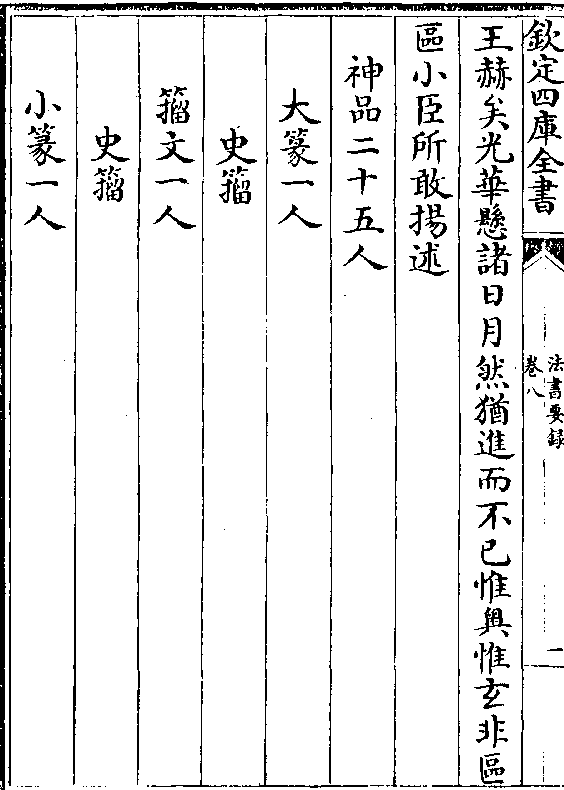 欽定四庫全書
法書要録
卷八
二
王赫矣光華懸諸日月然猶進而不已惟輿惟玄非區
區小臣所敢揚述
神品二十五人
大篆一人
史籀
籀文一人
史籀
小篆一人